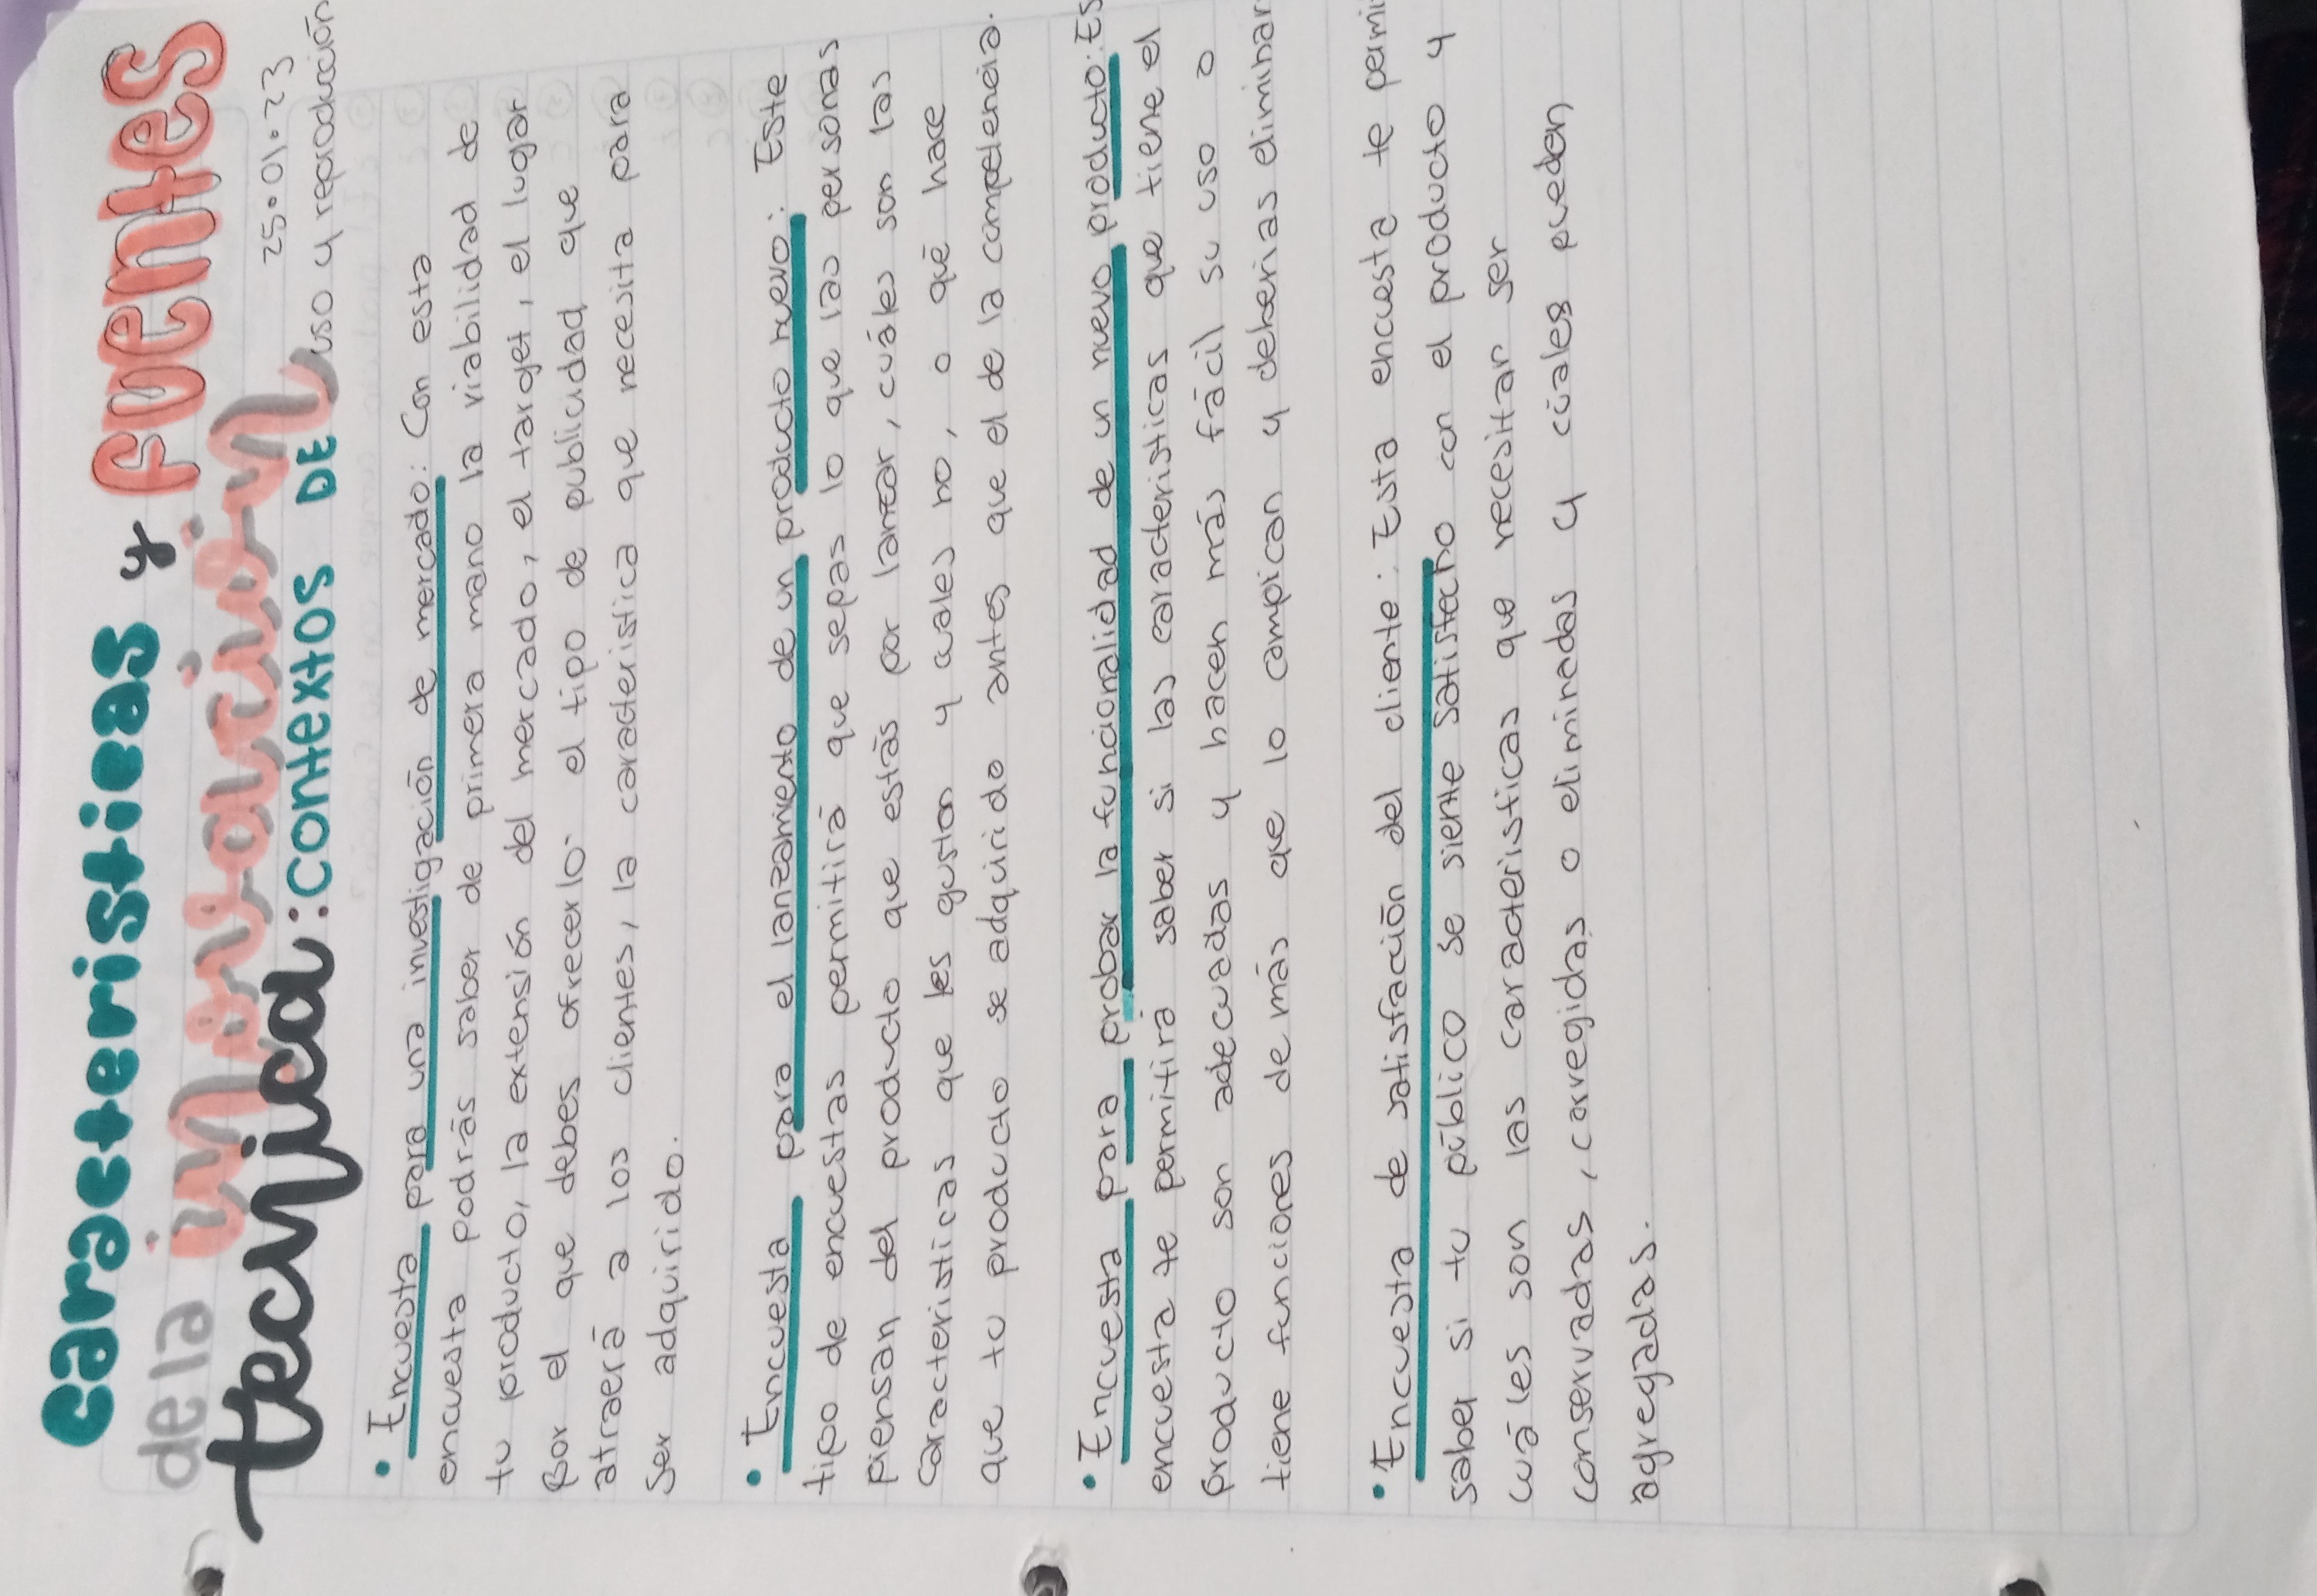 Caracteristicas y Fuentes
de la innovación
25•01•23
tecnica: contextos DE uso y reproducción
• Encuesta para una investigación de mercado: Con esta
encuesta podrás saber de primera mano la viabilidad de
tu producto, la extensión del mercado, el target, el lugar
por el que debes ofrecerlo el tipo de publicidad que
atraerá a los clientes, la caracteristica que necesita para
ser adquirido.
• Encuesta para el lanzamiento de un producto nuevo: Este
tipo de encuestas permitirá que sepas lo que las personas
piensan del producto que estás por lanzar, cuáles son las
caracteristicas que les gustan y cuales no, o qué hace
que tu producto se adquirido antes que el de la competencia.
• Encuesta para probar la funcionalidad de un nuevo producto: Es
encuesta te permitirá saber si las caracteristicas que tiene el
producto son adecuadas y hacen más fácil su uso o
tiene funciones de más que lo compican y deberias eliminar
• Encuesta de satisfacción del cliente: Esta encuesta te permi
saber si tu público se siente satisfecho con el producto y
cuáles son las caracteristicas que necesitan ser
conservadas, corregidas o eliminadas y cúales pueden
agregadas.